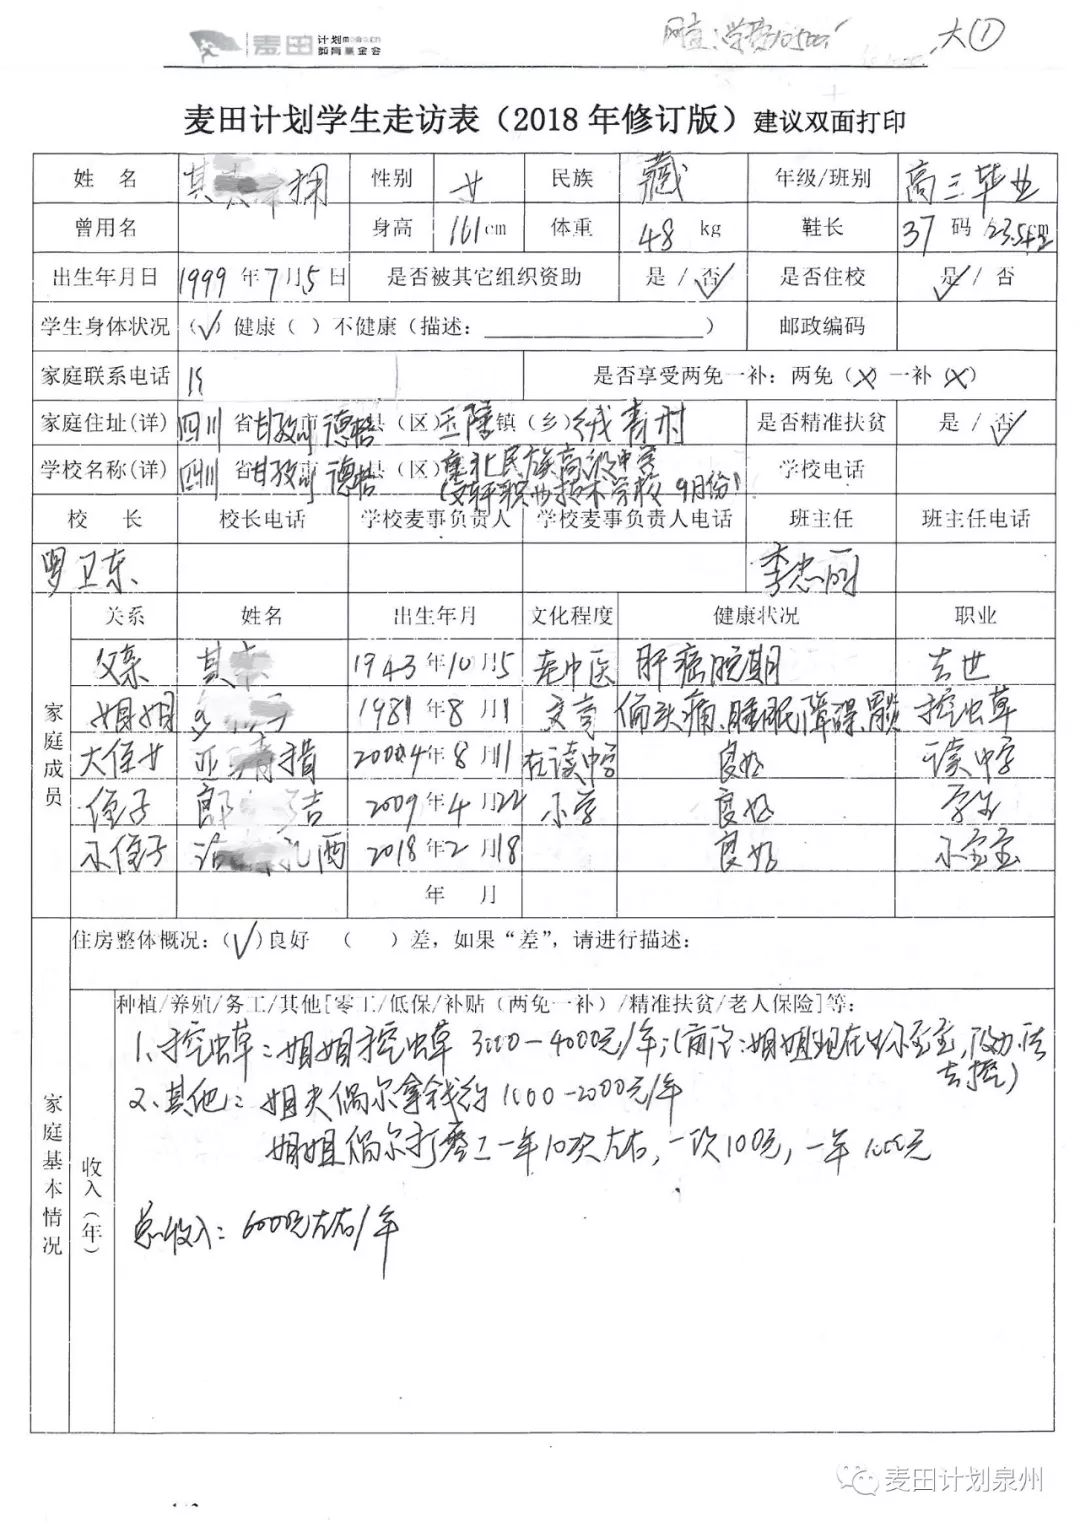 麦田 计划 教育基金会
网查：学费10500
大①
麦田计划学生走访表（2018 年修订版）建议双面打印
姓 名 其 拥 性别 女 民族 藏 年级/班别 高三毕业
曾用名 身高 161cm 体重 48 kg 鞋长 37 码 23.5cm
出生年月日 1999 年 7 月 5 日 是否被其它组织资助 是 / 否✓ 是否住校 是✓ / 否
学生身体状况 （✓）健康（ ）不健康（描述： ） 邮政编码
家庭联系电话 是否享受两免一补：两免（×）一补（×）
家庭住址(详) 四川 省 甘孜州 市 德格 县（区）玉隆 镇（乡）绒青村 是否精准扶贫 是 / 否✓
学校名称(详) 四川 省 甘孜州 市 德格 县（区）康北民族高级中学 学校电话
（文轩职业技术学校 9月份）
校 长 校长电话 学校麦事负责人 学校麦事负责人电话 班主任 班主任电话
罗卫东 李忠丽
家庭成员
关系 姓名 出生年月 文化程度 健康状况 职业
父亲 其 1943 年 10 月 5 老中医 肝癌晚期 去世
姐姐 1981 年 8 月 1 文盲 偏头痛、睡眠障碍、胃炎 挖虫草
大侄女 措 2004 年 8 月 11 在读中学 良好 读中学
侄子 郎 吉 2009 年 4 月 22 小学 良好 学生
小侄子 西 2018 年 2 月 18 良好 小宝宝
年 月
家庭基本情况
住房整体概况：（✓）良好 （ ）差，如果“差”，请进行描述：
收入（年）
种植/养殖/务工/其他[零工/低保/补贴（两免一补）/精准扶贫/老人保险]等：
1、挖虫草：姐姐挖虫草 3000-4000元/年；（备注：姐姐现在生小宝宝，没办法
去挖）
2、其他：姐夫偶尔拿钱约 1000-2000元/年
姐姐偶尔打零工一年10次左右，一次100元，一年1000元
总收入：6000元左右/年
麦田计划泉州